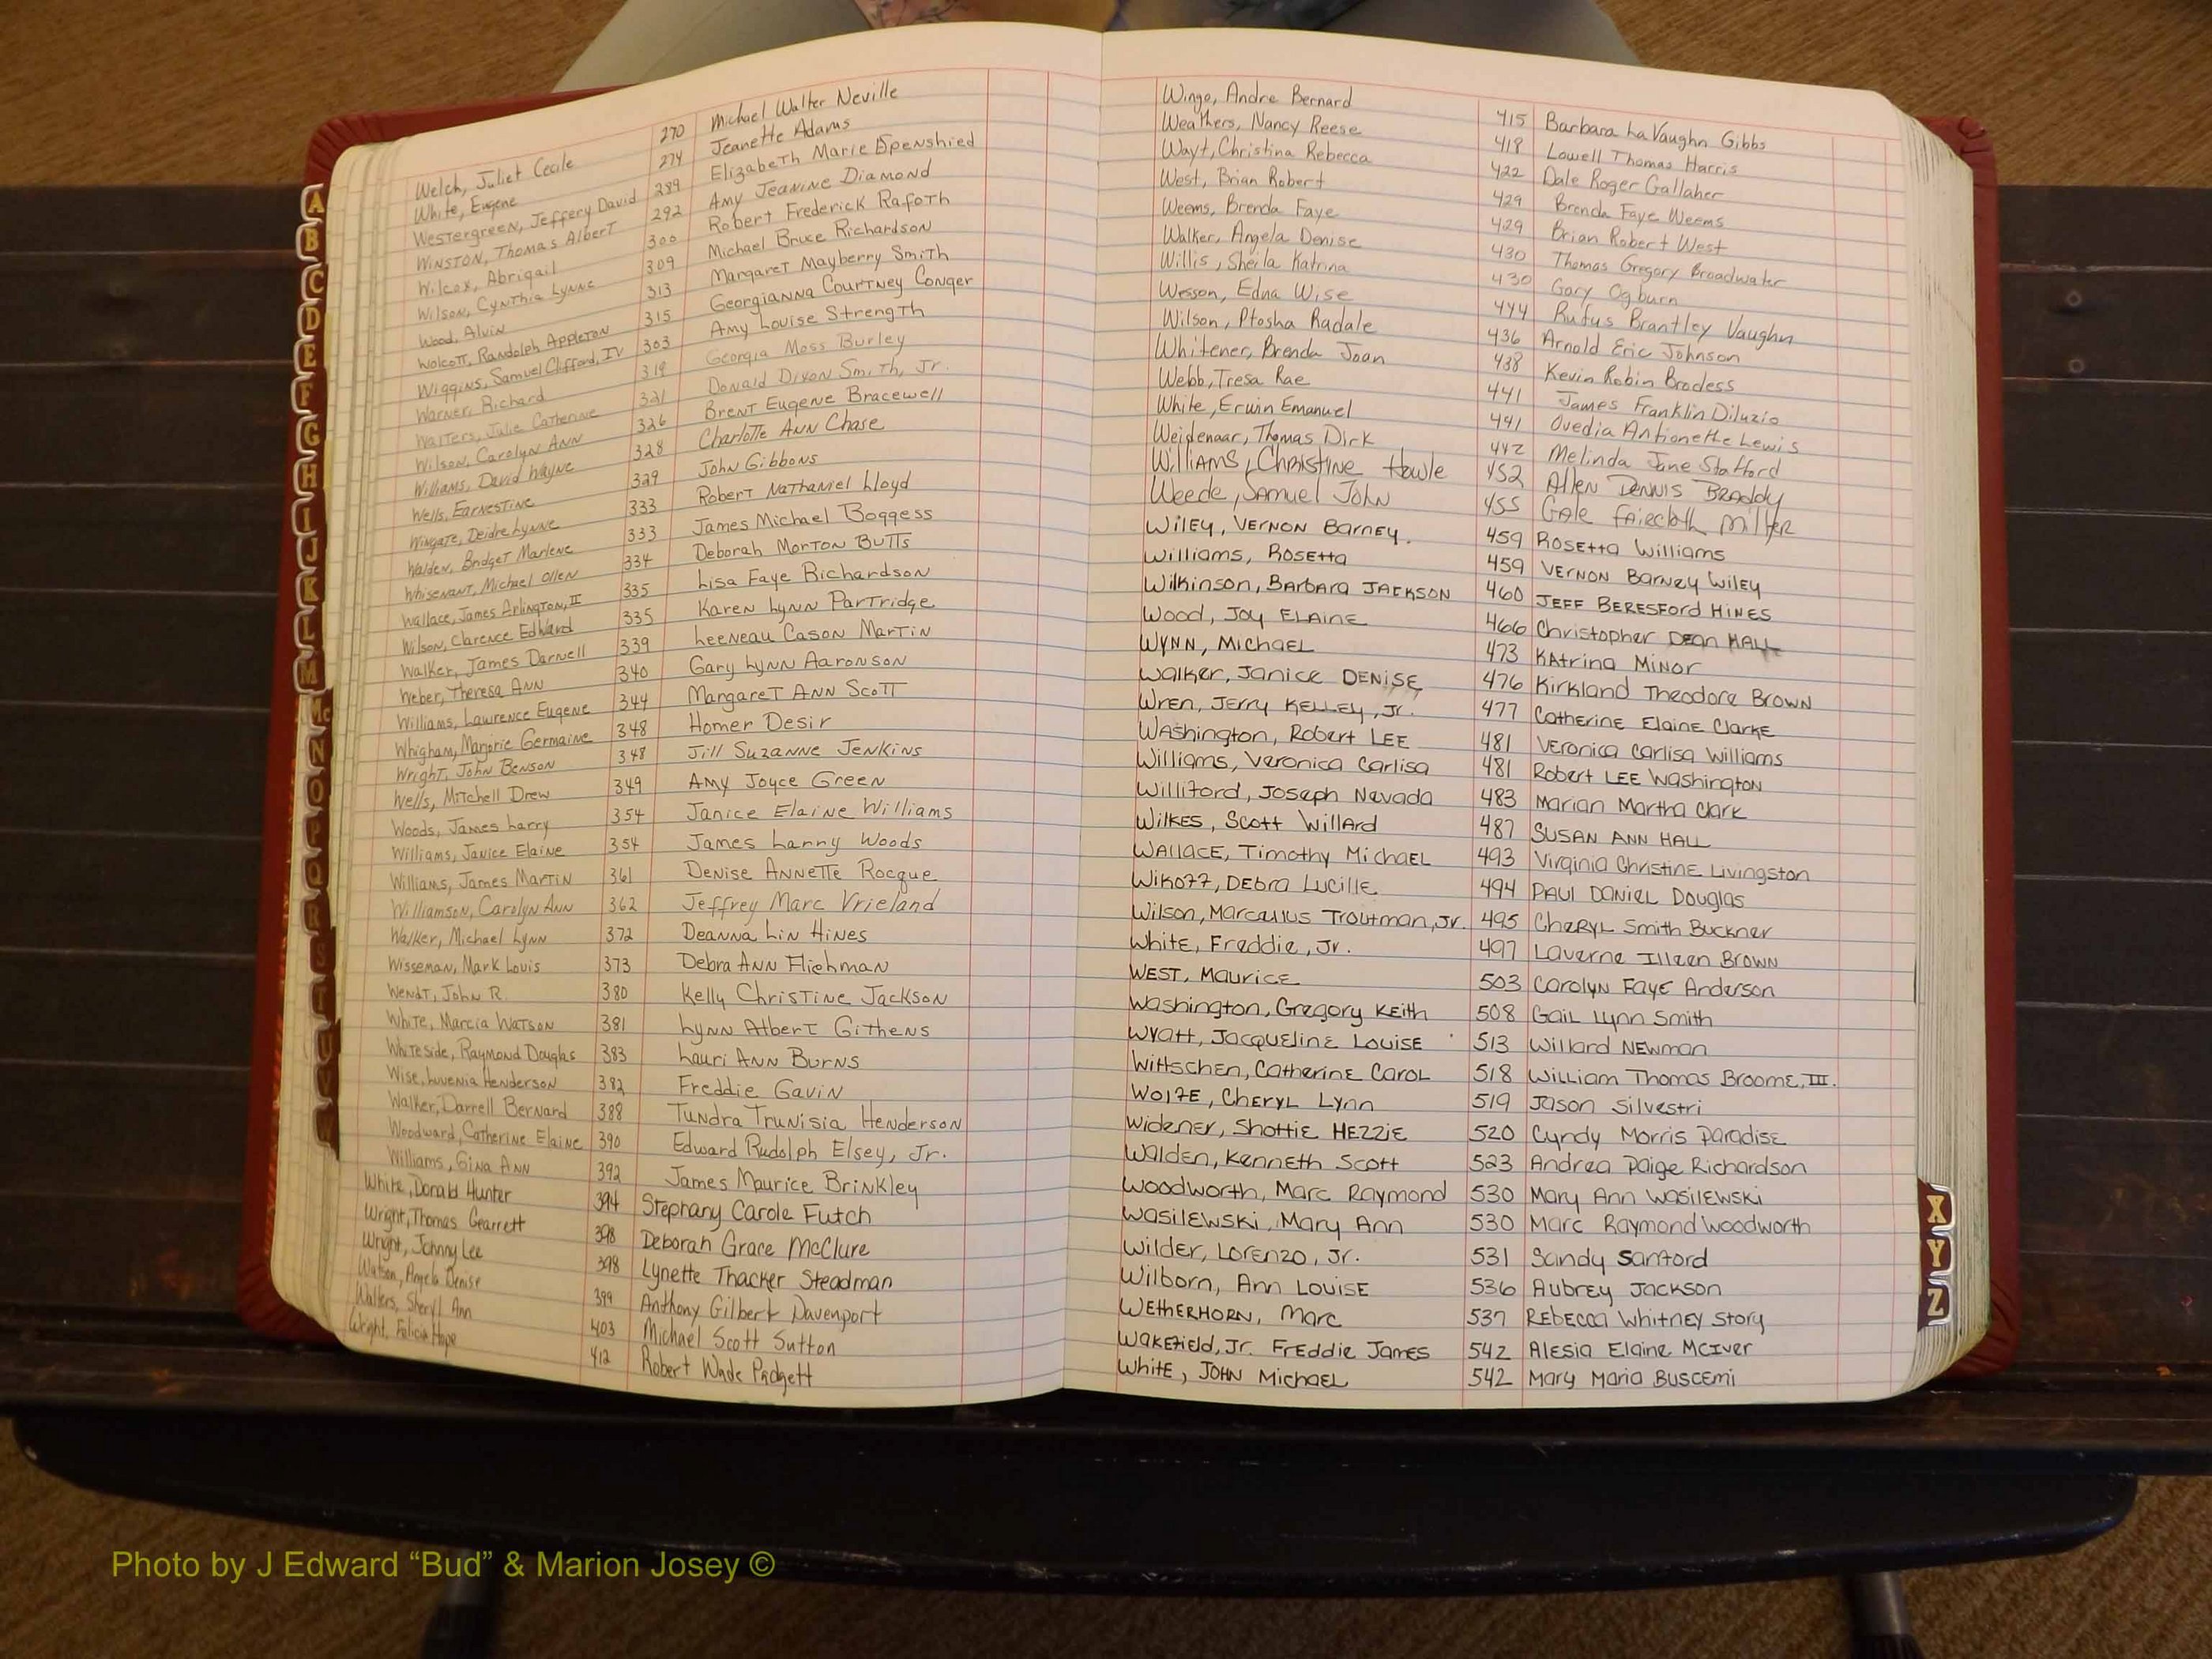 Welch, Juliet Cecile 270 Michael Walter Neville
White, Eugene 274 Jeanette Adams
Westergreen, Jeffery David 289 Elizabeth Marie Espenshied
Winston, Thomas Albert 292 Amy Jeanine Diamond
Wilcox, Abrigail 300 Robert Frederick Rafoth
Wilson, Cynthia Lynne 309 Michael Bruce Richardson
Wood, Alvin 313 Margaret Mayberry Smith
Wolcott, Randolph Appleton 315 Georgianna Courtney Conger
Wiggins, Samuel Clifford, IV 303 Amy Louise Strength
Warner, Richard 319 Georgia Moss Burley
Walters, Julie Catherine 321 Donald Dixon Smith, Jr.
Wilson, Carolyn Ann 326 Brent Eugene Bracewell
Williams, David Wayne 328 Charlotte Ann Chase
Wells, Earnestine 329 John Gibbons
Wingate, Deidre Lynne 333 Robert Nathaniel Lloyd
Walden, Bridget Marlene 333 James Michael Boggess
Whisenant, Michael Ollen 334 Deborah Morton Butts
Wallace, James Arlington, II 335 Lisa Faye Richardson
Wilson, Clarence Edward 335 Karen Lynn Partridge
Walker, James Darnell 339 Leeneau Cason Martin
Weber, Theresa Ann 340 Gary Lynn Aaronson
Williams, Lawrence Eugene 344 Margaret Ann Scott
Whigham, Marjorie Germaine 348 Homer Desir
Wright, John Benson 348 Jill Suzanne Jenkins
Wells, Mitchell Drew 349 Amy Joyce Green
Woods, James Larry 354 Janice Elaine Williams
Williams, Janice Elaine 354 James Larry Woods
Williams, James Martin 361 Denise Annette Rocque
Williamson, Carolyn Ann 362 Jeffrey Marc Vrieland
Walker, Michael Lynn 372 Deanna Lin Hines
Wisseman, Mark Louis 373 Debra Ann Fliehman
Wendt, John R. 380 Kelly Christine Jackson
White, Marcia Watson 381 Lynn Albert Githens
Whiteside, Raymond Douglas 383 Lauri Ann Burns
Wise, Luvenia Henderson 382 Freddie Gavin
Walker, Darrell Bernard 388 Tundra Trunisia Henderson
Woodward, Catherine Elaine 390 Edward Rudolph Elsey, Jr.
Williams, Gina Ann 392 James Maurice Brinkley
White, Donald Hunter 394 Stephany Carole Futch
Wright, Thomas Gearrett 398 Deborah Grace McClure
Wright, Johnny Lee 398 Lynette Thacker Steadman
Watson, Angela Denise 399 Anthony Gilbert Davenport
Walters, Sheryl Ann 403 Michael Scott Sutton
Wright, Felicia Hope 412 Robert Wade Padgett
Wingo, Andre Bernard 415 Barbara La Vaughn Gibbs
Weathers, Nancy Reese 418 Lowell Thomas Harris
Wayt, Christina Rebecca 422 Dale Roger Gallaher
West, Brian Robert 429 Brenda Faye Weems
Weems, Brenda Faye 429 Brian Robert West
Walker, Angela Denise 430 Thomas Gregory Broadwater
Willis, Sheila Katrina 430 Gary Ogburn
Wesson, Edna Wise 444 Rufus Brantley Vaughn
Wilson, Ptosha Radale 436 Arnold Eric Johnson
Whitener, Brenda Joan 438 Kevin Robin Brodess
Webb, Tresa Rae 441 James Franklin Diluzio
White, Erwin Emanuel 441 Ovedia Antionette Lewis
Weidenaar, Thomas Dirk 442 Melinda Jane Stafford
Williams, Christine Howle 452 Allen Dennis Braddy
Weede, Samuel John 455 Gale Faircloth Miller
Wiley, Vernon Barney. 459 Rosetta Williams
Williams, Rosetta 459 Vernon Barney Wiley
Wilkinson, Barbara Jackson 460 Jeff Beresford Hines
Wood, Joy Elaine 466 Christopher Dean Hall
Wynn, Michael 473 Katrina Minor
Walker, Janice Denise 476 Kirkland Theodore Brown
Wren, Jerry Kelley, Jr. 477 Catherine Elaine Clarke
Washington, Robert Lee 481 Veronica Carlisa Williams
Williams, Veronica Carlisa 481 Robert Lee Washington
Williford, Joseph Nevada 483 Marian Martha Clark
Wilkes, Scott Willard 487 Susan Ann Hall
Wallace, Timothy Michael 493 Virginia Christine Livingston
Wikoff, Debra Lucille 494 Paul Daniel Douglas
Wilson, Marcellus Troutman, Jr. 495 Cheryl Smith Buckner
White, Freddie, Jr. 497 Laverne Illeen Brown
West, Maurice 503 Carolyn Faye Anderson
Washington, Gregory Keith 508 Gail Lynn Smith
Wyatt, Jacqueline Louise 513 Willard Newman
Wittschen, Catherine Carol 518 William Thomas Broome, III.
Wolfe, Cheryl Lynn 519 Jason Silvestri
Widener, Shottie Hezzie 520 Cyndy Morris Paradise
Walden, Kenneth Scott 523 Andrea Paige Richardson
Woodworth, Marc Raymond 530 Mary Ann Wasilewski
Wasilewski, Mary Ann 530 Marc Raymond Woodworth
Wilder, Lorenzo, Jr. 531 Sandy Sanford
Wilborn, Ann Louise 536 Aubrey Jackson
Wetherhorn, Marc 537 Rebecca Whitney Story
Wakefield, Jr. Freddie James 542 Alesia Elaine McIver
White, John Michael 542 Mary Maria Buscemi
A
B
C
D
E
F
G
H
I
J
K
L
M
Mc
N
O
P
Q
R
S
T
U
V
W
X
Y
Z
Photo by J Edward “Bud” & Marion Josey ©